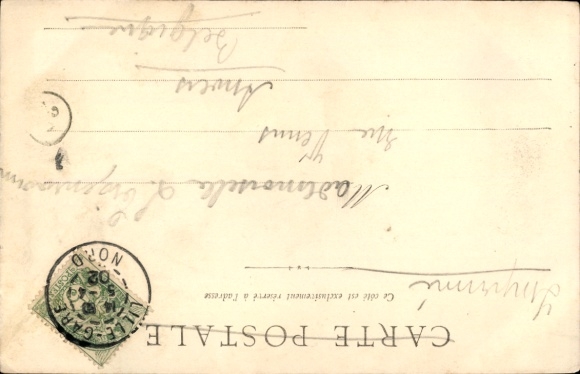 CARTE POSTALE
Ce côté est exclusivement réservé à l'adresse
Imprimé
Mademoiselle L.
rue Venus
Anvers
Belgique
LILLE-GARE
NORD
02